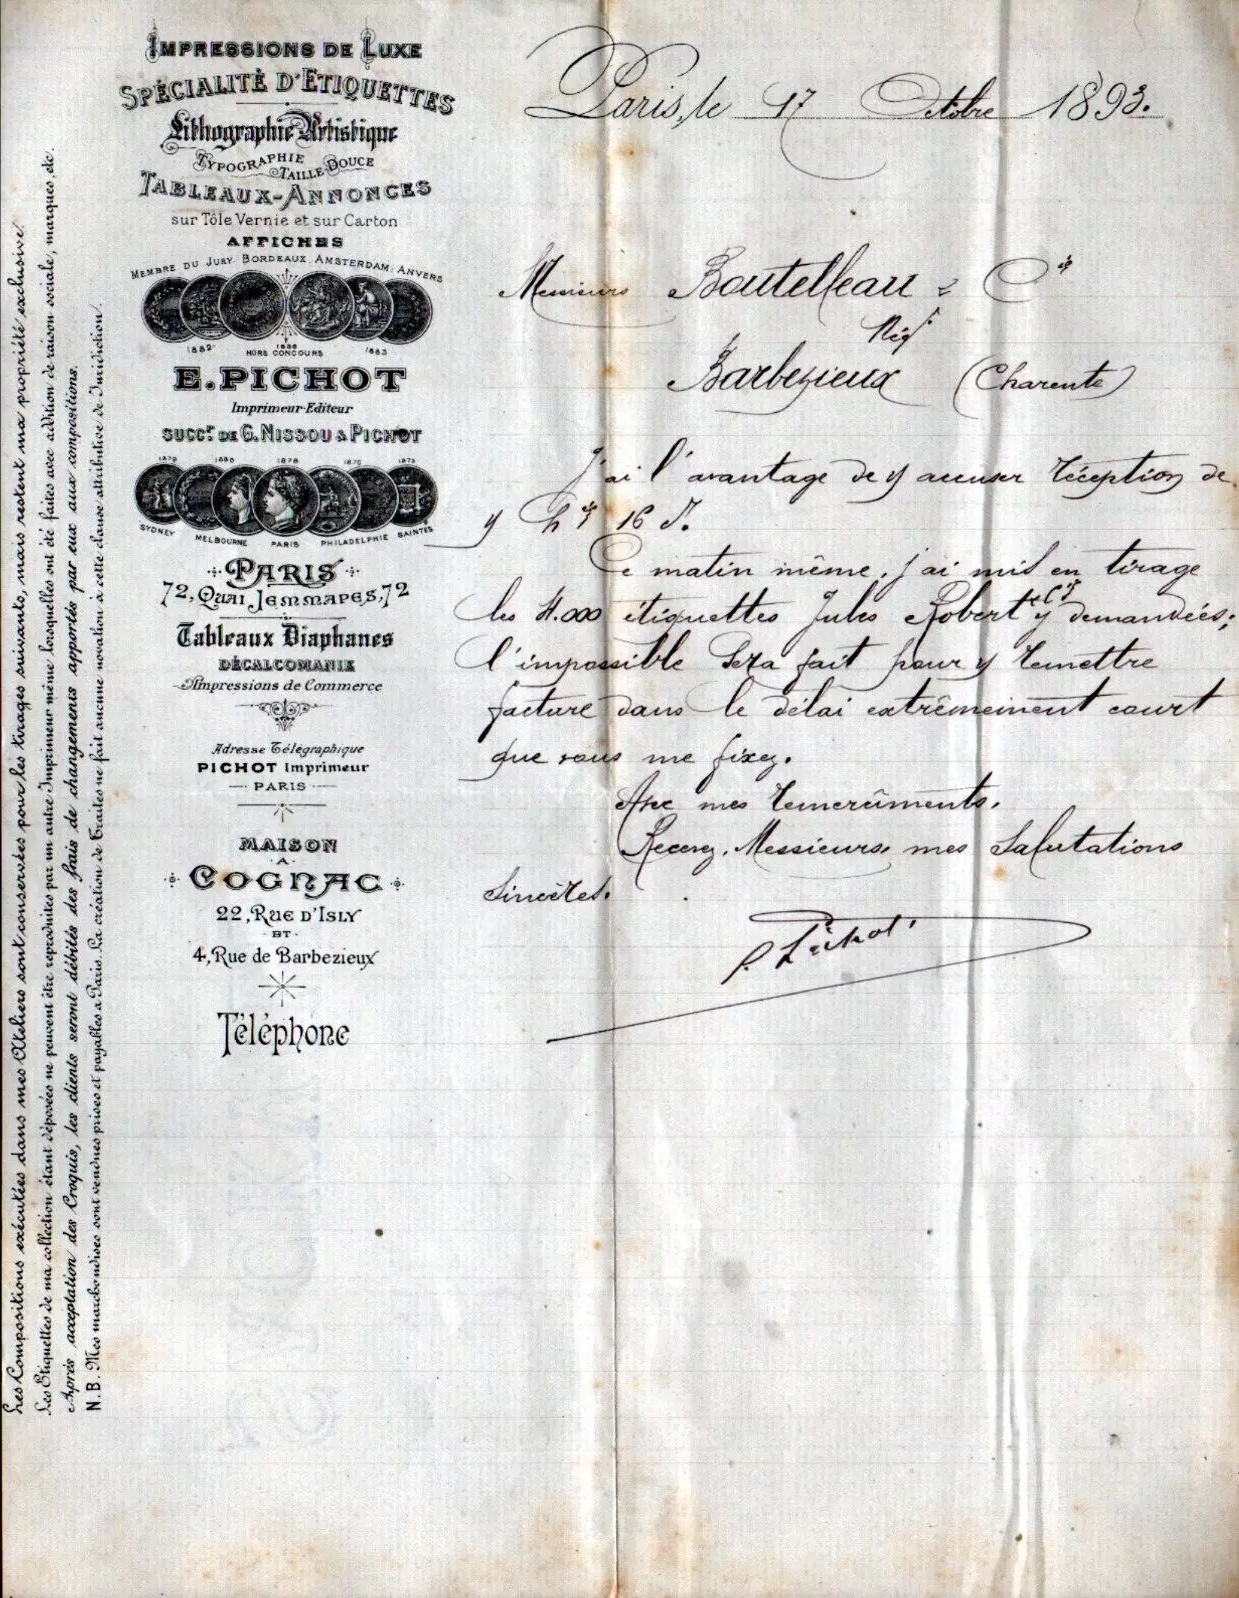 IMPRESSIONS DE LUXE
SPÉCIALITÉ D'ETIQUETTES
Lithographie Artistique
TYPOGRAPHIE
TAILLE-DOUCE
TABLEAUX-ANNONCES
sur Tôle Vernie et sur Carton
AFFICHES
MEMBRE DU JURY. BORDEAUX. AMSTERDAM. ANVERS
1882 HORS CONCOURS 1883
E. PICHOT
Imprimeur-Editeur
SUCCr. DE G. NISSOU & PICHOT
1879 1880 1878
SYDNEY MELBOURNE PARIS PHILADELPHIE SAINTES
PARIS
72, QUAI JEMMAPES, 72
Tableaux Diaphanes
DÉCALCOMANIE
Impressions de Commerce
Adresse Télégraphique
PICHOT Imprimeur
PARIS
MAISON
A
COGNAC
22, RUE D'ISLY
ET
4, Rue de Barbezieux
Téléphone
Les Compositions exécutées dans mes Ateliers sont conservées pour les tirages suivants, mais restent ma propriété exclusive.
Les Etiquettes de ma collection étant déposées ne peuvent être reproduites par un autre Imprimeur même lorsqu'elles ont été faites avec addition de raison sociale, marques, etc.
Après acceptation des Croquis, les clients seront débités des frais de changements apportés par eux aux compositions.
N.B. Mes marchandises sont vendues prises et payables à Paris. La création de Traites ne fait aucune novation à cette clause attributive de Juridiction.
Paris, le 17 Octobre 1893.
Messieurs Boutelleau & Cie
Négt
Barbezieux (Charente)
J'ai l'avantage de v/ accuser réception de
v/ h/ 16 ct.
Ce matin même, j'ai mis en tirage
les 4.000 étiquettes Jules Robert & Cie v/ demandées;
l'impossible sera fait pour v/ remettre
facture dans le délai extrêmement court
que vous me fixez.
Avec mes remerciments.
Recevez, Messieurs, mes salutations
sincères.
Pichot